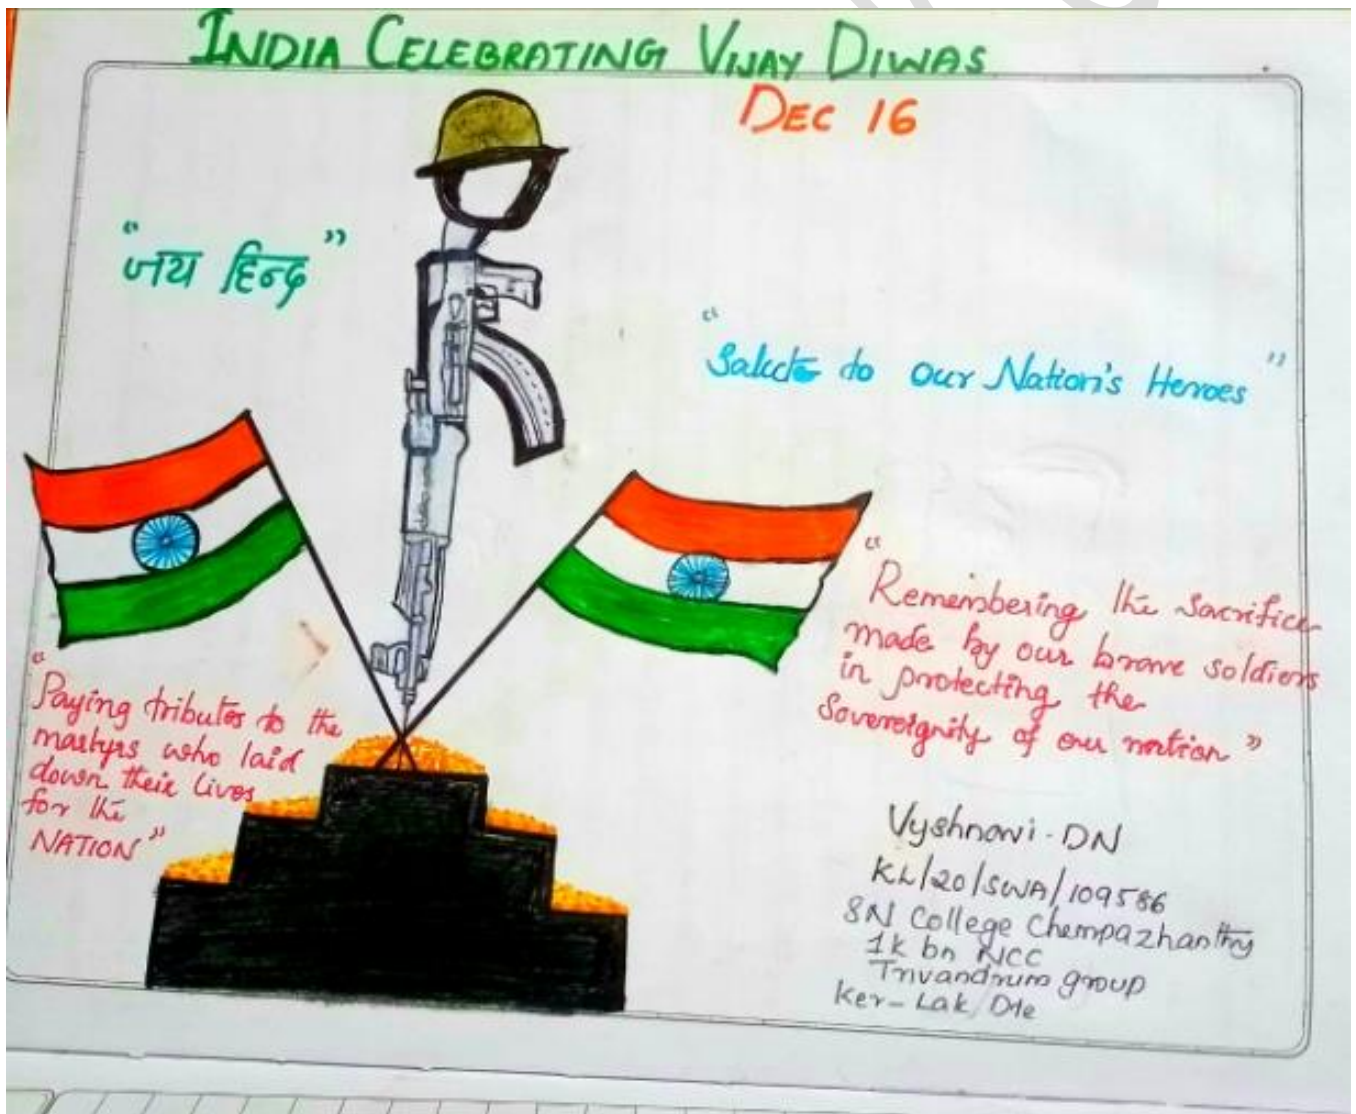 INDIA CELEBRATING VIJAY DIWAS
DEC 16
"जय हिन्द"
"Salute to our Nation's Heroes"
"Remembering the sacrifice
made by our brave soldiers
in protecting the
Sovereignity of our nation"
"Paying tributes to the
martyrs who laid
down their lives
for the
NATION"
Vyshnavi-DN
KL/20/SWA/109586
SN College Chempazhanthy
1k bn NCC
Trivandrum group
Ker-Lak Dte